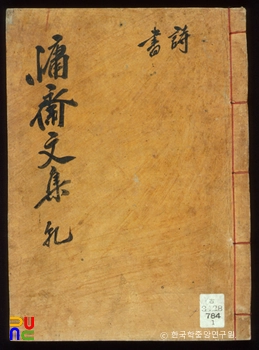 詩書
慵齋文集
1
© 한국학중앙연구원